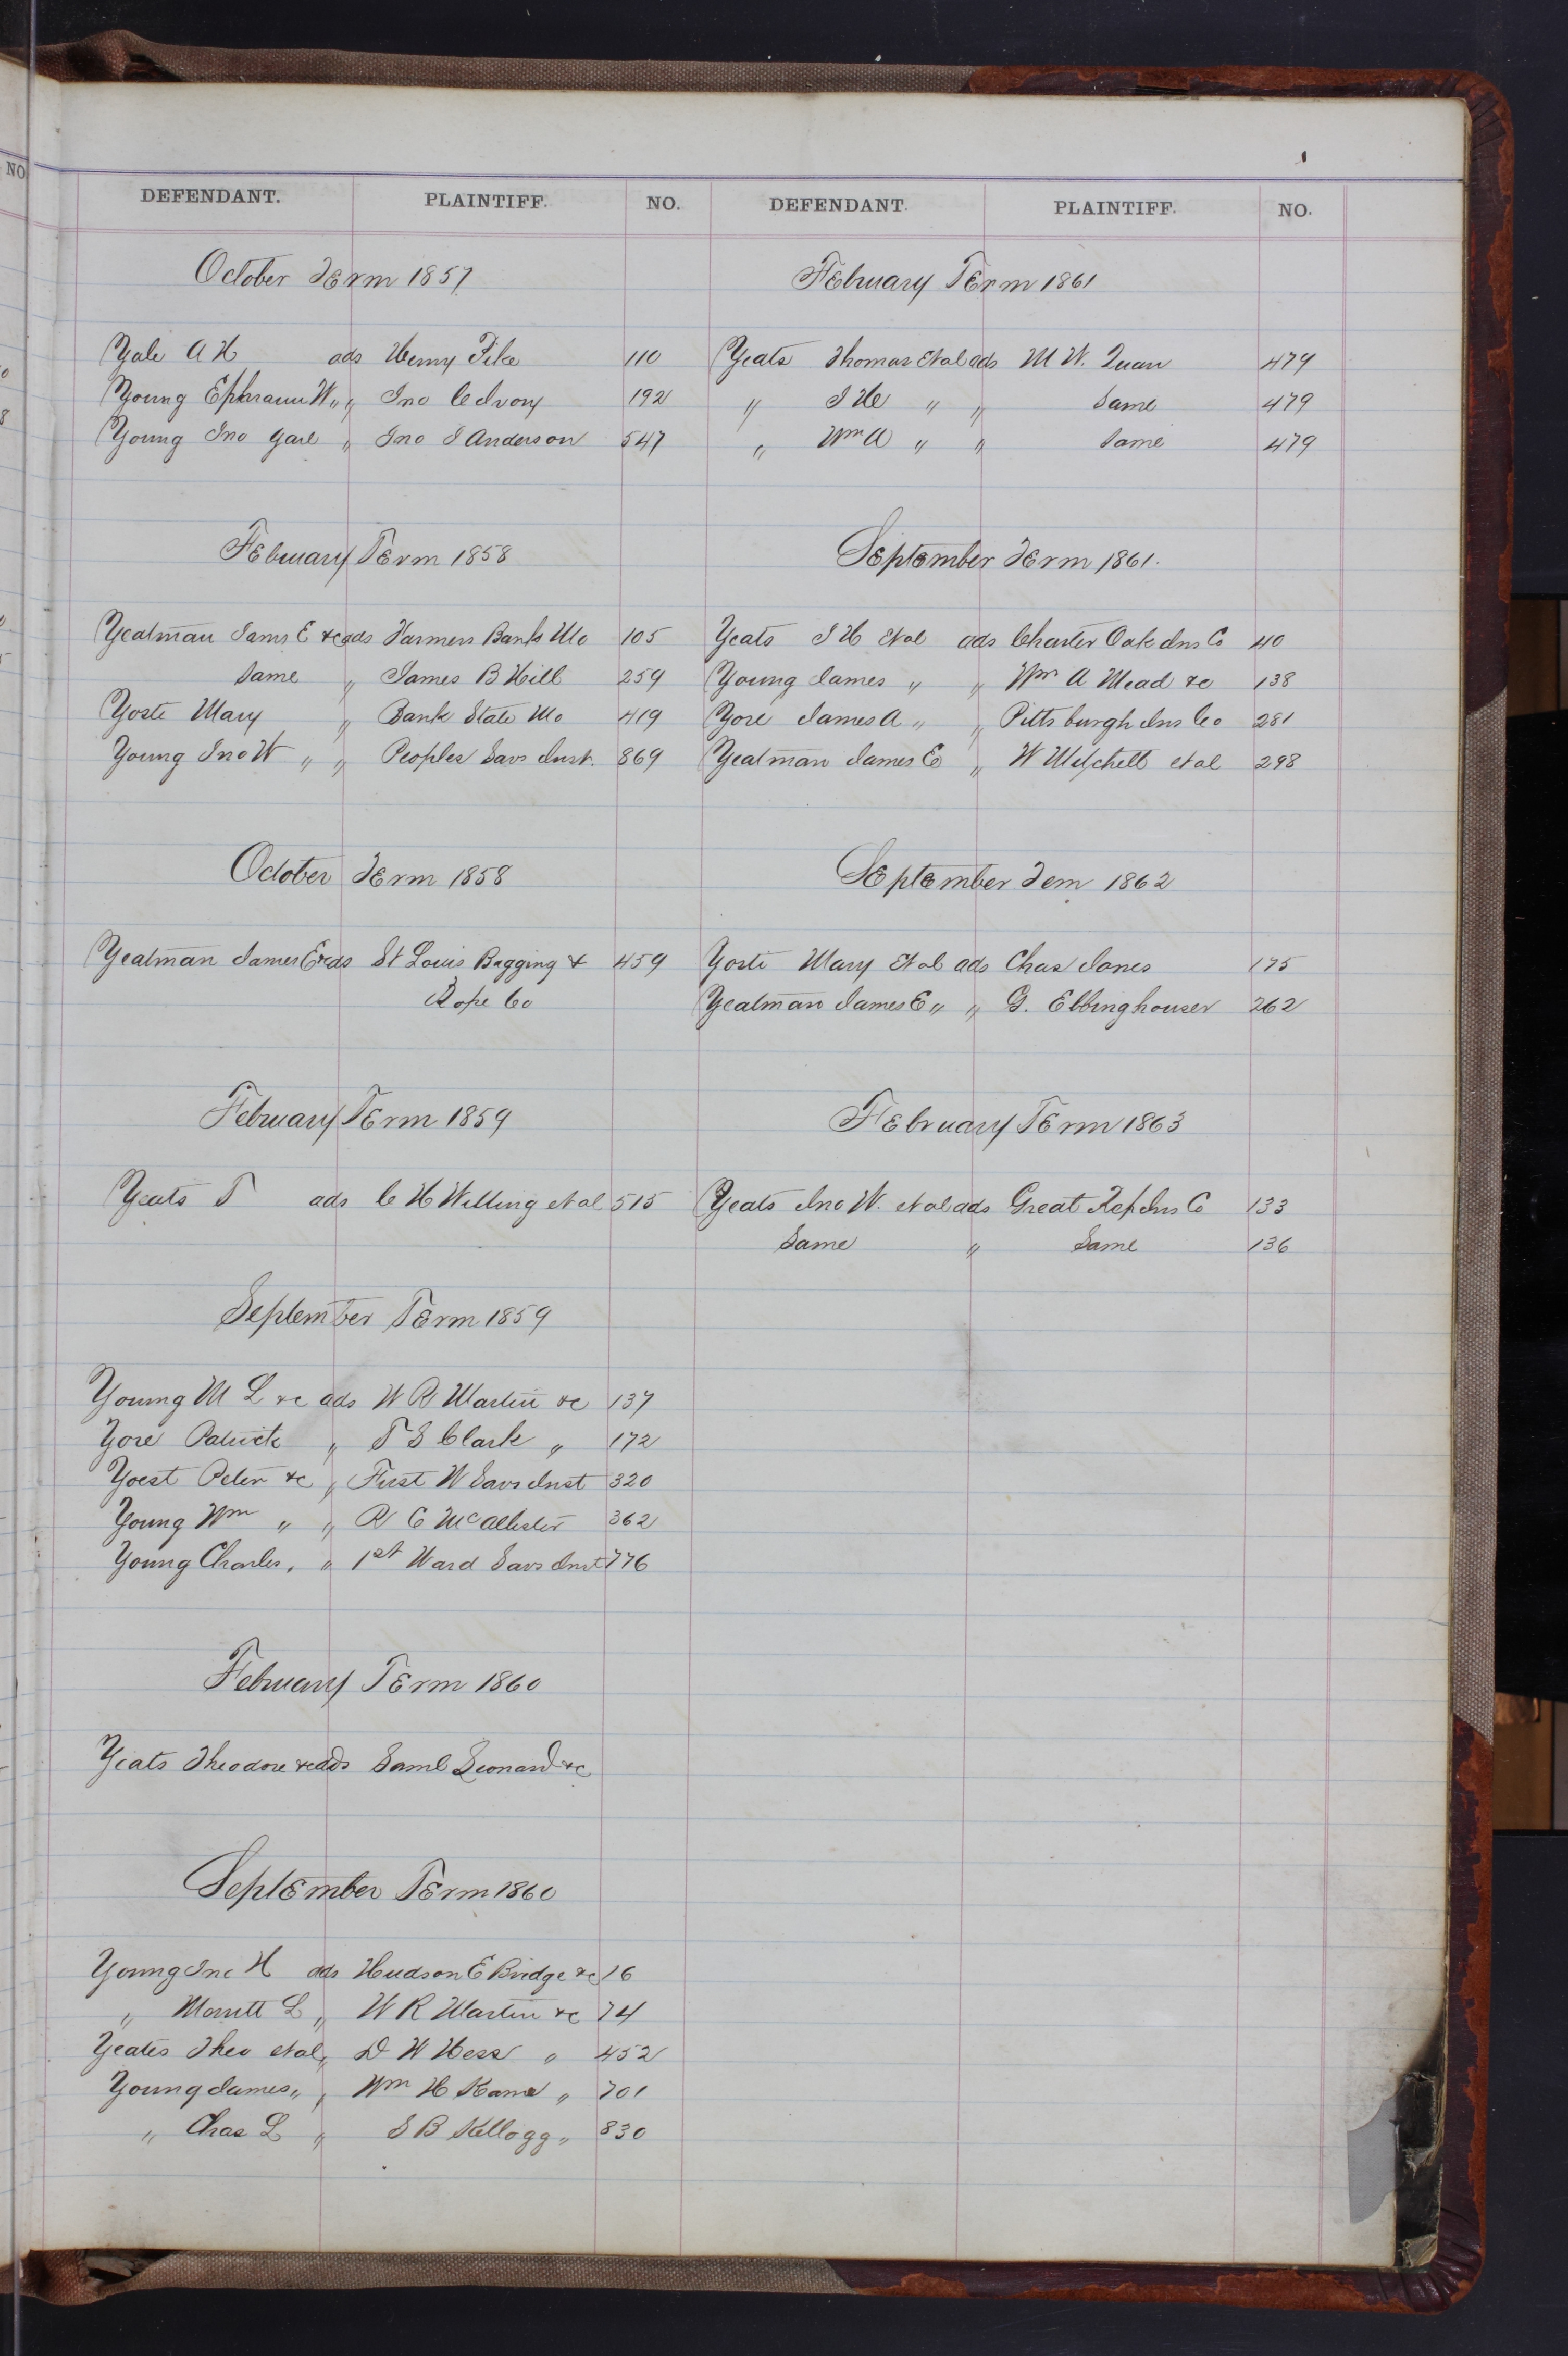 NO
DEFENDANT. PLAINTIFF. NO.
October Term 1857
Yale A H ads Henry Pike 110
Young Ephraim W " " Jno C Ivory 192
Young Jno Gale " Jno J Anderson 547
February Term 1858
Yeatman James E &c ads Farmers Bank Mo 105
Same " James B Hill 259
Yosti Mary " Bank State Mo 419
Young Jno W " " Peoples Savs Inst. 869
October Term 1858
Yeatman James E &c ads St Louis Bagging & 459
Rope Co
February Term 1859
Yeats T ads C H Willing et al 515
September Term 1859
Young M L &c ads W R Martin &c 137
Yore Patrick " T S Clark " 172
Yoest Peter &c " First W Savs Inst 320
Young Wm " " R C McAllister 362
Young Charles " " 1st Ward Savs Inst 776
February Term 1860
Yeats Theodore &c ads Saml Leonard &c
September Term 1860
Young Jno H ads Hudson E Bridge &c 16
" Merritt L " W R Martin &c 74
Yeates Theo et al " D W Hess " 452
Young James " " Wm H Kane " 701
" Chas L " S B Kellogg " 830
DEFENDANT. PLAINTIFF. NO.
February Term 1861
Yeats Thomas et al ads M W. Quan 479
" J H " " Same 479
" Wm A " " Same 479
September Term 1861.
Yeats J H et al ads Charter Oak Ins Co 40
Young James " " Wm A Mead &c 138
Yore James A " " Pittsburgh Ins Co 281
Yeatman James E " W Mitchell et al 298
September Tem 1862
Yosti Mary et al ads Chas Jones 175
Yeatman James E " " G. Ebbinghouser 262
February Term 1863
Yeats Jno W. et al ads Great Rep Ins Co 133
Same " Same 136